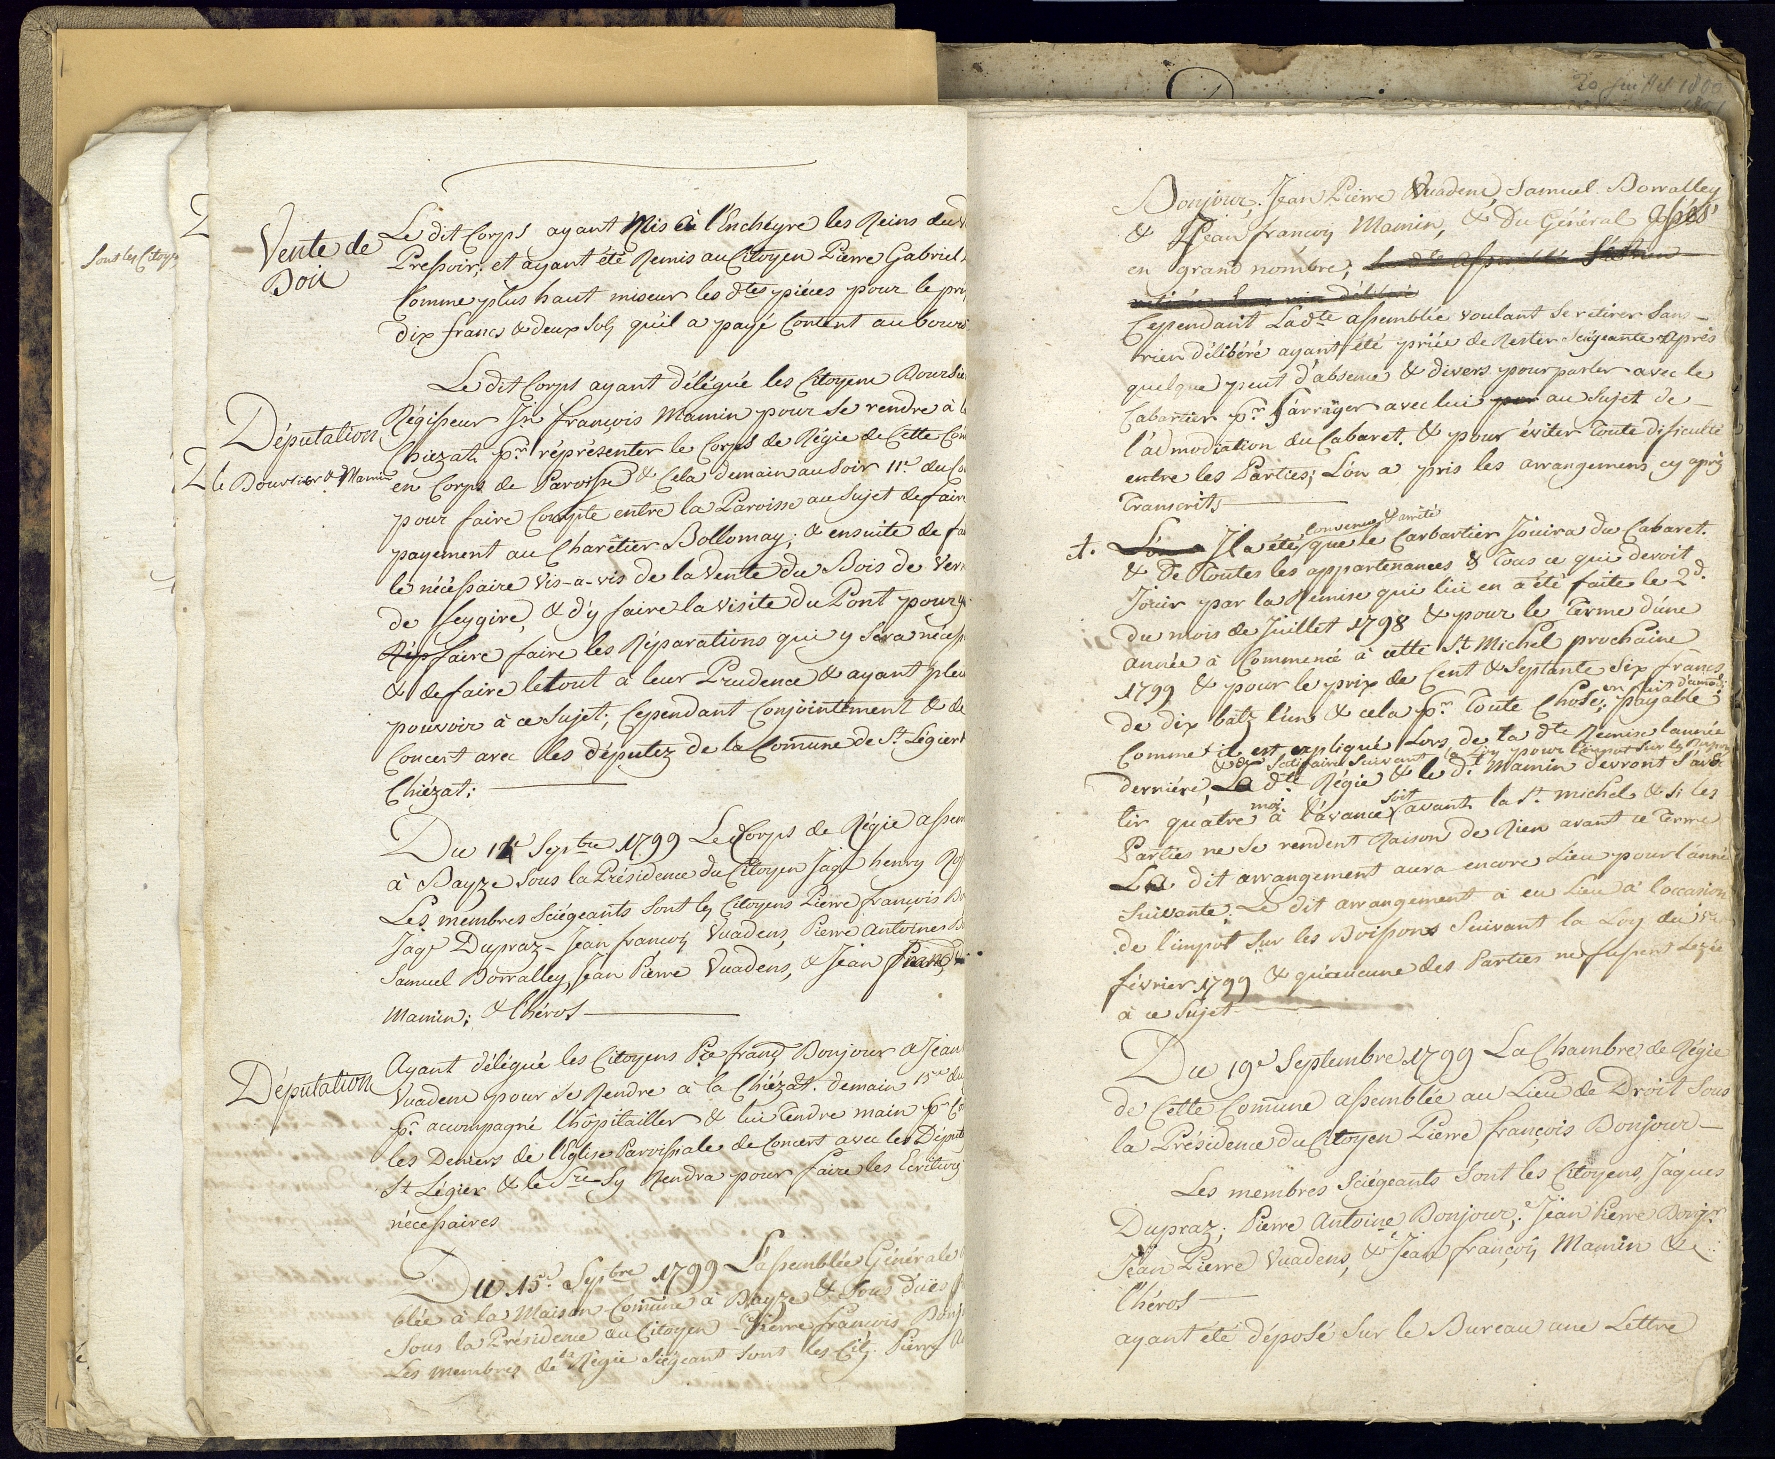 20 Juillet 1800
1801
Sont les Citoye
Vente de
Boie
Le dit Corps ayant Mis à l'Encheyre les Reins du v
Pressoir; et ayant été Remis au Citoyen Pierre Gabriel
Comme plus haut miseur les dtes pièces pour le prix
dix francs & deux Sols qu'il a payé Content au bours
Députation
le Boursier & Mamin
Le dit Corps ayant délégué les Citoyens Boursie
Régisseur Jn françois Mamin pour se rendre à la
Chiezat pr réprésenter le Corps de Régie de Cette Com
en Corps de Paroisse & Cela demain au Soir 11e du Co
pour faire Compte entre la Paroisse au Sujet de faire
payement au Charêtier Bollomay; & ensuite de fa
le nécessaire vis-a-vis de la vente du Bois de Ver
de feygire, & d'y faire la visite du Pont pour y
Rép faire faire les Réparations qui y Sera nécess
& de faire le tout à leur Prudence & ayant plei
pouvoir à ce Sujet; Cependant Conjointement & de
Concert avec les députez de la Comune de St Légier
Chiézat;
Du 14e Septbre 1799 Le Corps de Régie assem
à Bayze Sous la Présidence du Citoyen Jaqe henry
Les membres Sciégeants Sont les Citoyens Pierre françois Bo
Jaqe Dupraz - Jean françois Vuadens, Pierre Antoines B
Samuel Borralley, Jean Pierre Vuadens, & Jean franç
Mamin; & Chérost
Députation
Ayant délégué les Citoyens Pre franç Bonjour & Jean
Vuadens pour se Rendre à la Chiézat. demain 15e du
pr accompagné l'hôpitailler & lui Tendre main pr
les Deniers de l'Eglise Paroissiale de Concert avec les Députe
St Légier & le Sre Sy Rendra pour faire les Ecritures
nécessaires
Du 15e Sepbre 1799 L'assemblée Générale
blée à la Maison Comune à Bayze &
Sous la Présidence du Citoyen Pierre françois Bonj
Les membres de la Régie Siégeant Sont les Cit: Pierre
Bonjour, Jean Pierre Vuadens, Samuel Borralley
& Jean françois Mamin, & du Général assés
en grand nombre;
Cependant Ladte assemblée voulant se retirer Sans
rien délibéré ayant été priée de Rester Sciégeante après
quelque peut d'absence & divers pourparler avec le
Cabartier pr S'arrânger avec lui par au Sujet de
l'admodiation du Cabaret. & pour éviter toute dificulté
entre les Parties; L'on a pris les arrangemens cy après
Transcrits
1. L'on Il a été convenus & arrêté que le Carbartier Jouira du Cabaret.
& de Toutes les appartenances & Tous ce qui devoit
Jouir par la Remise qui lui en a été faite le 2d.
du mois de Juillet 1798 & pour le Terme d'une
année à Commencé à cette St Michel prochaine
1799 & pour le prix de Cent & Septante Six francs
de dix batz l'un & cela pr Toute Chose; en fait d'amod: payable
Comme il est expliqué Lors de la dte Remise l'année
derniére, La dte Régie & le dt Mamin devront S'aver
tir quatre moi à l'avance, soit avant la St Michel & Si les
Parties ne se rendent Raison de Rien avant ce Terme
Le dit arrangement aura encore Lieu pour l'anné
Suivante; Le dit arrangement à eu Lieu à l'occasion
de l'impot Sur les Boissons Suivant la Loy du
février 1799 & qu'aucune des Parties ne fussent Lezée
à ce Sujet
Du 19e Septembre 1799 La Chambre de Régie
de Cette Comune assemblée au Lieu de Droit Sous
la Présidence du Citoyen Pierre françois Bonjour
Les membres Sciégeants Sont les Citoyens Jaques
Dupraz; Pierre Antoine Bonjour; Jean Pierre Bonjr
Jean Pierre Vuadens, & Jean françois Mamin &
Chérost
ayant été déposé Sur le Bureau une Lettre